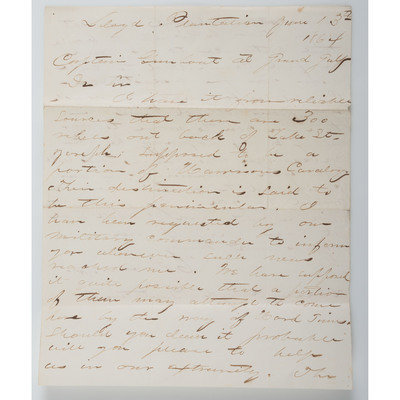 Lloyds Plantation June 13th
1864
Captain Command at Grand Gulf
Dr Sir
I have it from reliable
sources that there are 300
rebels out back of Lake St.
Joseph, supposed to be a
portion of Harrisons Cavalry
Their destination is said to
be this peninsular. I
have been requested by our
military commander to inform
you whenever such news
reached me. We have supposed
it quite possible that a portion
of them may attempt to come
near by the way of Hard Times.
Should you deem it probable
will you please to help
us in our extremity. The